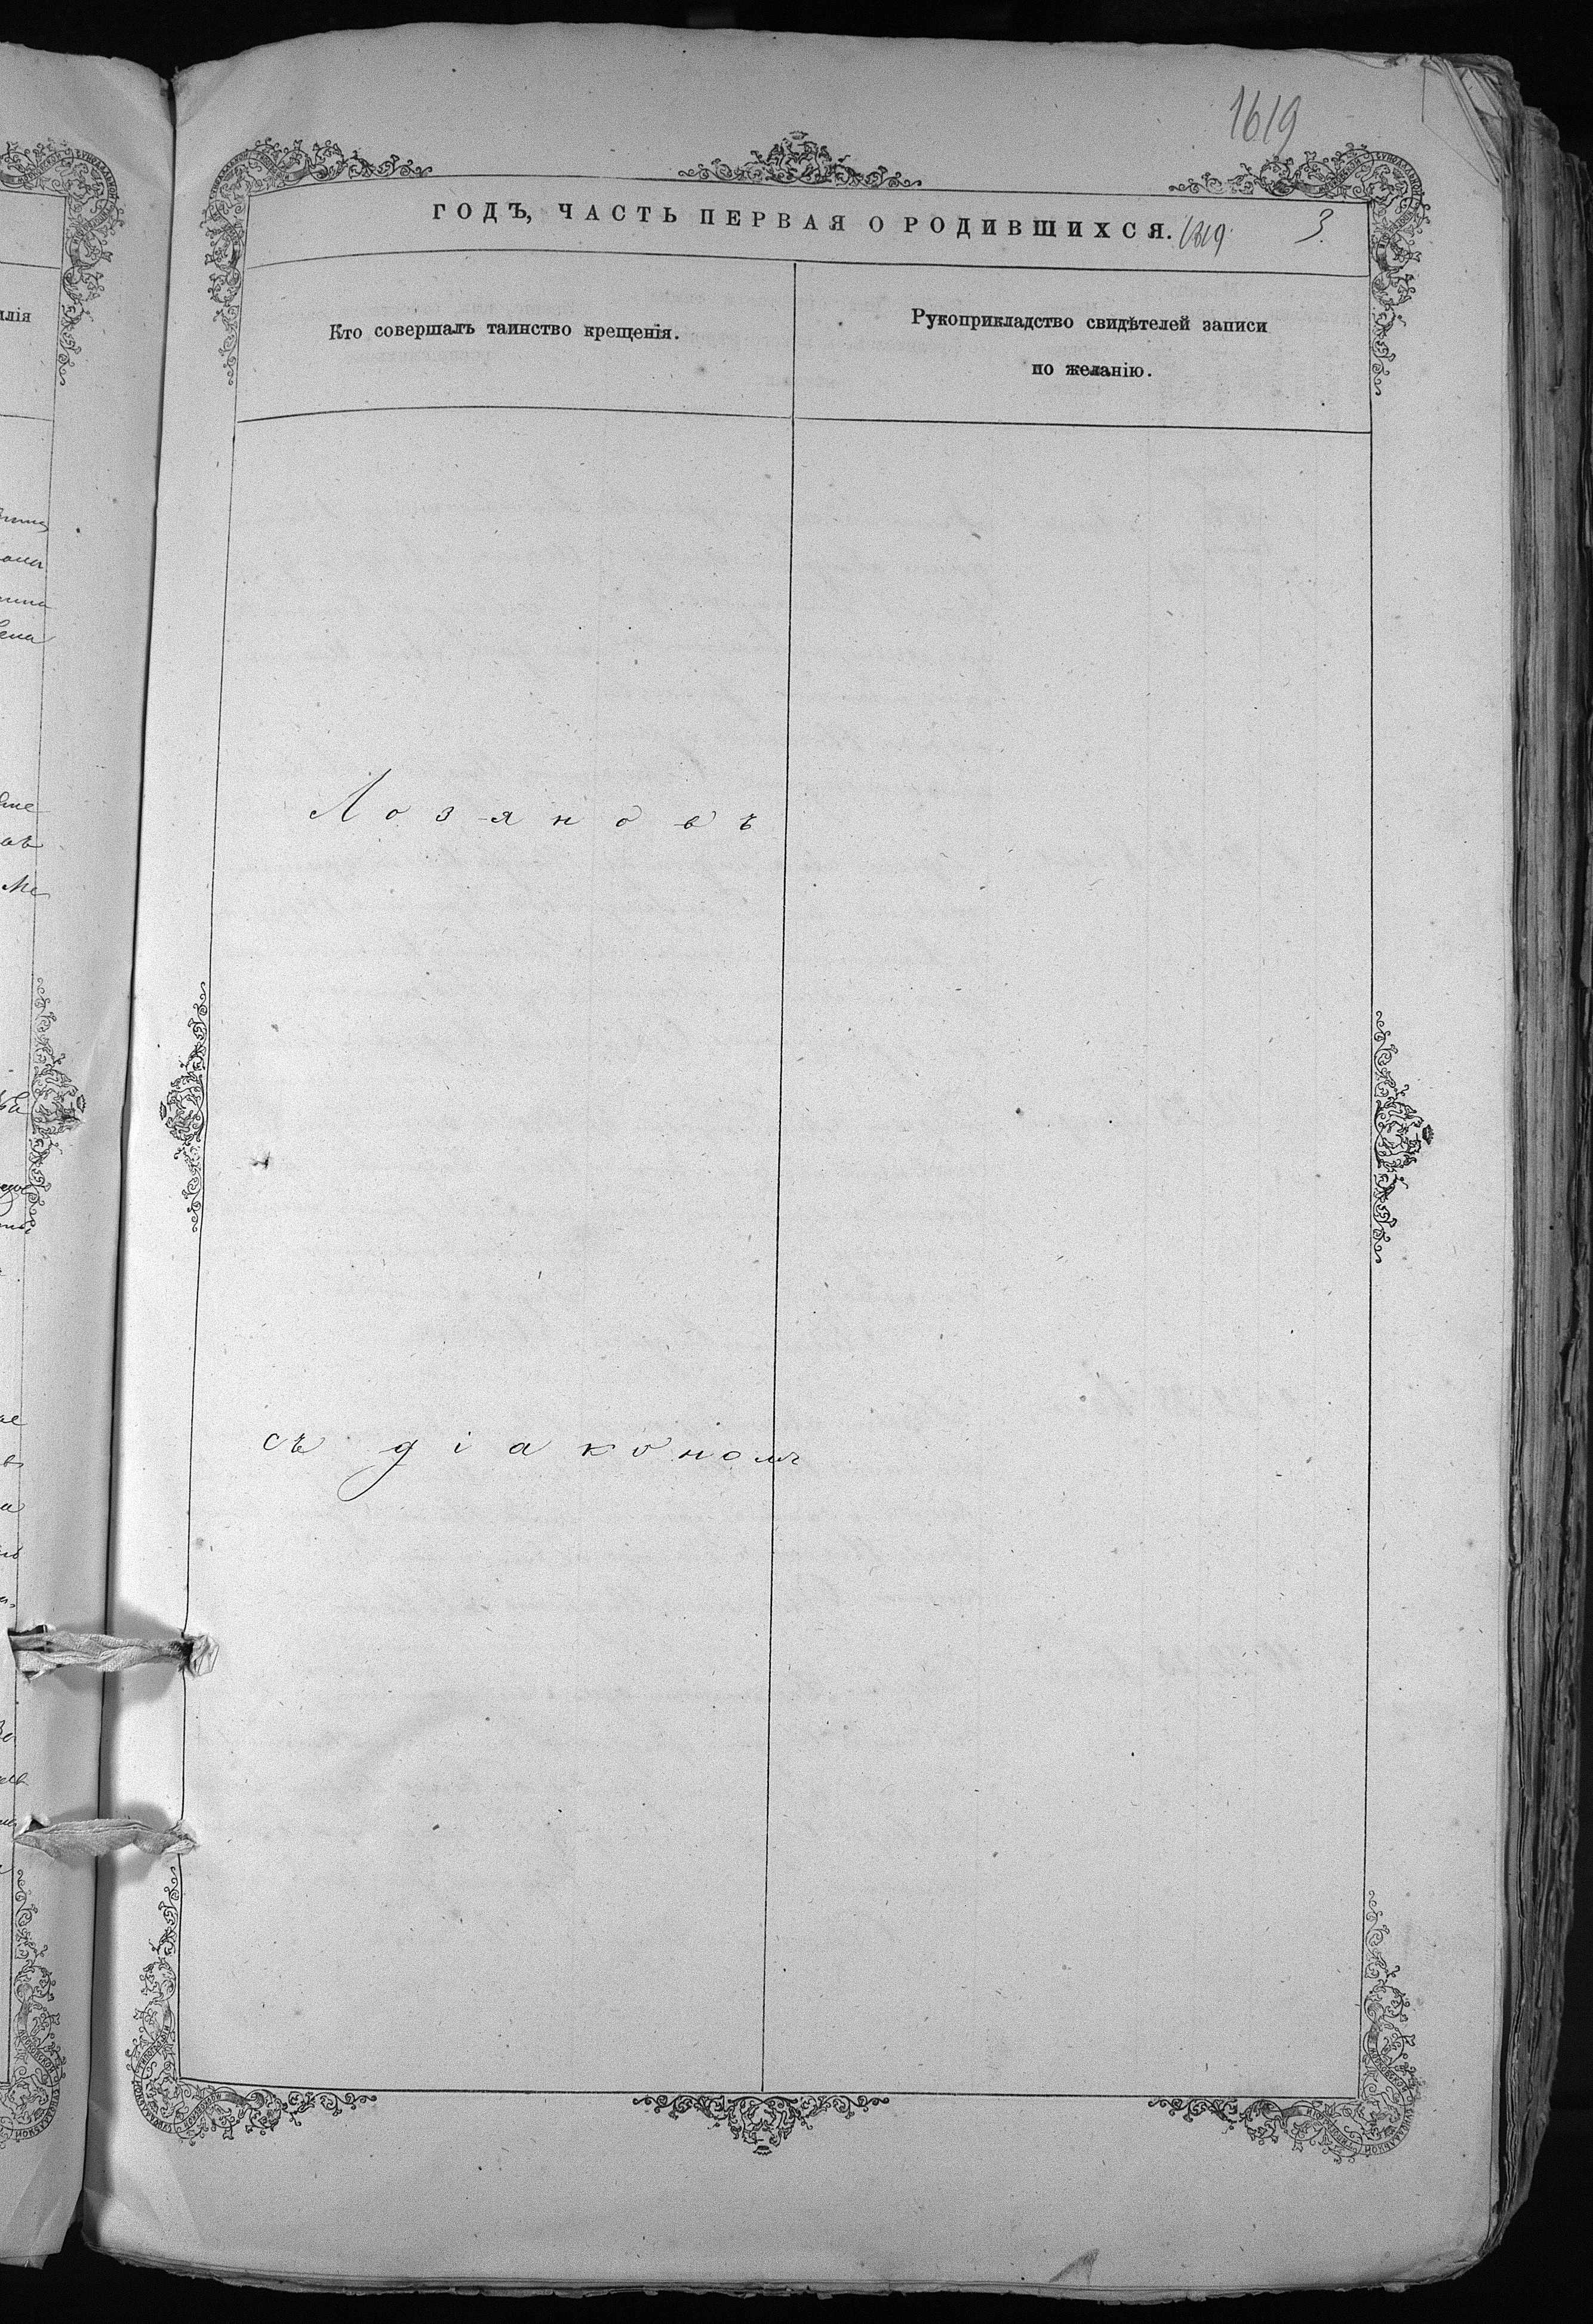 1619
ГОДЪ, ЧАСТЬ ПЕРВАЯ О РОДИВШИХСЯ. 1319 3.
Кто совершалъ таинство крещенія.
Рукоприкладство свидѣтелей записи
по желанію.
Лозяновъ
съ діакономъ